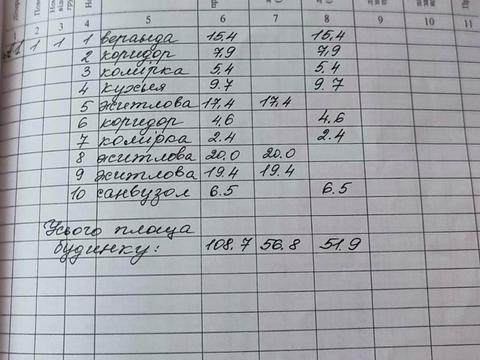 1 2 3 4 5 6 7 8 9 10 11
А1 1 1 1 веранда 15,4 15,4
2 коридор 7,9 7,9
3 комірка 5.4 5.4
4 кухня 9.7 9.7
5 житлова 17,4 17,4
6 коридор 4,6 4.6
7 комірка 2.4 2.4
8 житлова 20.0 20.0
9 житлова 19.4 19.4
10 санвузол 6.5 6.5
Усього площа
будинку: 108.7 56.8 51.9